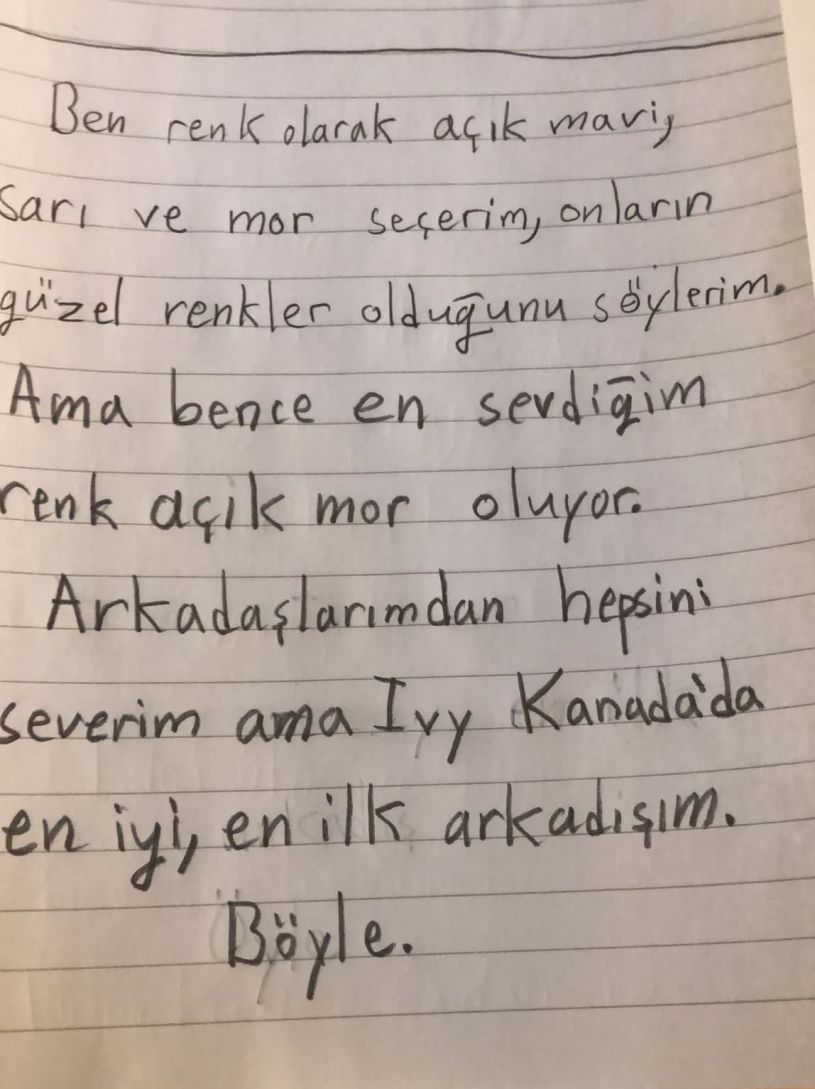 Ben renk olarak açık mavi,
sarı ve mor seçerim, onların
güzel renkler olduğunu söylerim.
Ama bence en sevdiğim
renk açık mor oluyor.
Arkadaşlarımdan hepsini
severim ama Ivy Kanada'da
en iyi, en ilk arkadışım.
Böyle.